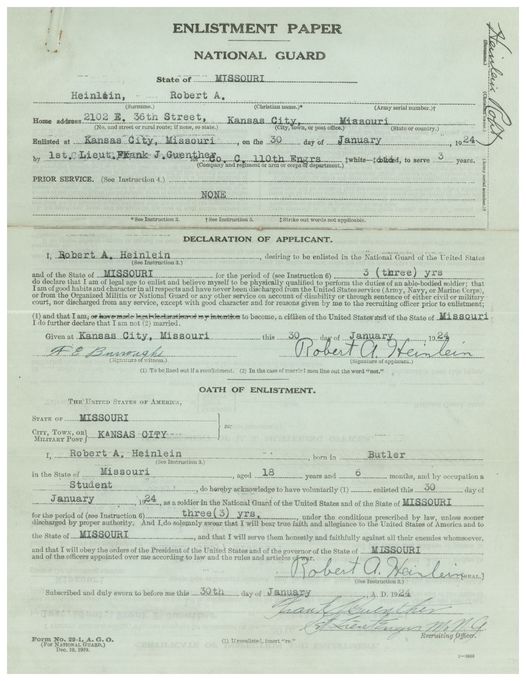 ENLISTMENT PAPER
NATIONAL GUARD
State of MISSOURI
Heinlein, Robert A.
(Surname.) (Christian name.)* (Army serial number.)†
Home address 2102 E. 36th Street, Kansas City, Missouri
(No. and street or rural route; if none, so state.) (City, town, or post office.) (State or country.)
Enlisted at Kansas City, Missouri, on the 30 day of January, 1924
by 1st. Lieut. Frank J. Guenther as Co. C, 110th Engrs ‡white—colored, to serve 3 years.
(Company and regiment or arm or corps or department.)
PRIOR SERVICE. (See Instruction 4.)
NONE
*See Instruction 2. †See Instruction 5. ‡Strike out words not applicable.
Heinlein Robt
DECLARATION OF APPLICANT.
I, Robert A. Heinlein, desiring to be enlisted in the National Guard of the United States
(See Instruction 3.)
and of the State of MISSOURI for the period of (see Instruction 6) 3 (three) yrs
do declare that I am of legal age to enlist and believe myself to be physically qualified to perform the duties of an able-bodied soldier; that
I am of good habits and character in all respects and have never been discharged from the United States service (Army, Navy, or Marine Corps),
or from the Organized Militia or National Guard or any other service on account of disability or through sentence of either civil or military
court, nor discharged from any service, except with good character and for reasons given by me to the recruiting officer prior to enlistment;
(1) and that I am, or have made legal declaration of my intention to become, a citizen of the United States and of the State of Missouri
I do further declare that I am not (2) married.
Given at Kansas City, Missouri this 30 day of January 1924
F E Burroughs Robert A. Heinlein
(Signature of witness.) (Signature of applicant.)
(1) To be lined out if a reenlistment. (2) In the case of married men line out the word "not."
OATH OF ENLISTMENT.
THE UNITED STATES OF AMERICA,
STATE OF MISSOURI
CITY, TOWN, OR
MILITARY POST KANSAS CITY
ss:
I, Robert A. Heinlein, born in Butler
(See Instruction 3.)
in the State of Missouri, aged 18 years and 6 months, and by occupation a
Student, do hereby acknowledge to have voluntarily (1) enlisted this 30 day of
January, 1924, as a soldier in the National Guard of the United States and of the State of MISSOURI
for the period of (see Instruction 6) three(3) yrs., under the conditions prescribed by law, unless sooner
discharged by proper authority. And I do solemnly swear that I will bear true faith and allegiance to the United States of America and to
the State of MISSOURI, and that I will serve them honestly and faithfully against all their enemies whomsoever,
and that I will obey the orders of the President of the United States and of the governor of the State of MISSOURI
and of the officers appointed over me according to law and the rules and articles of war.
Robert A. Heinlein [SEAL.]
(See Instruction 3.)
Subscribed and duly sworn to before me this 30th day of January, A. D. 1924
Frank J Guenther
1st Lieut Engrs Mo N G
Recruiting Officer.
Form No. 22-1, A. G. O.
(FOR NATIONAL GUARD.)
Dec. 12, 1919.
(1) If reenlisted, insert "re."